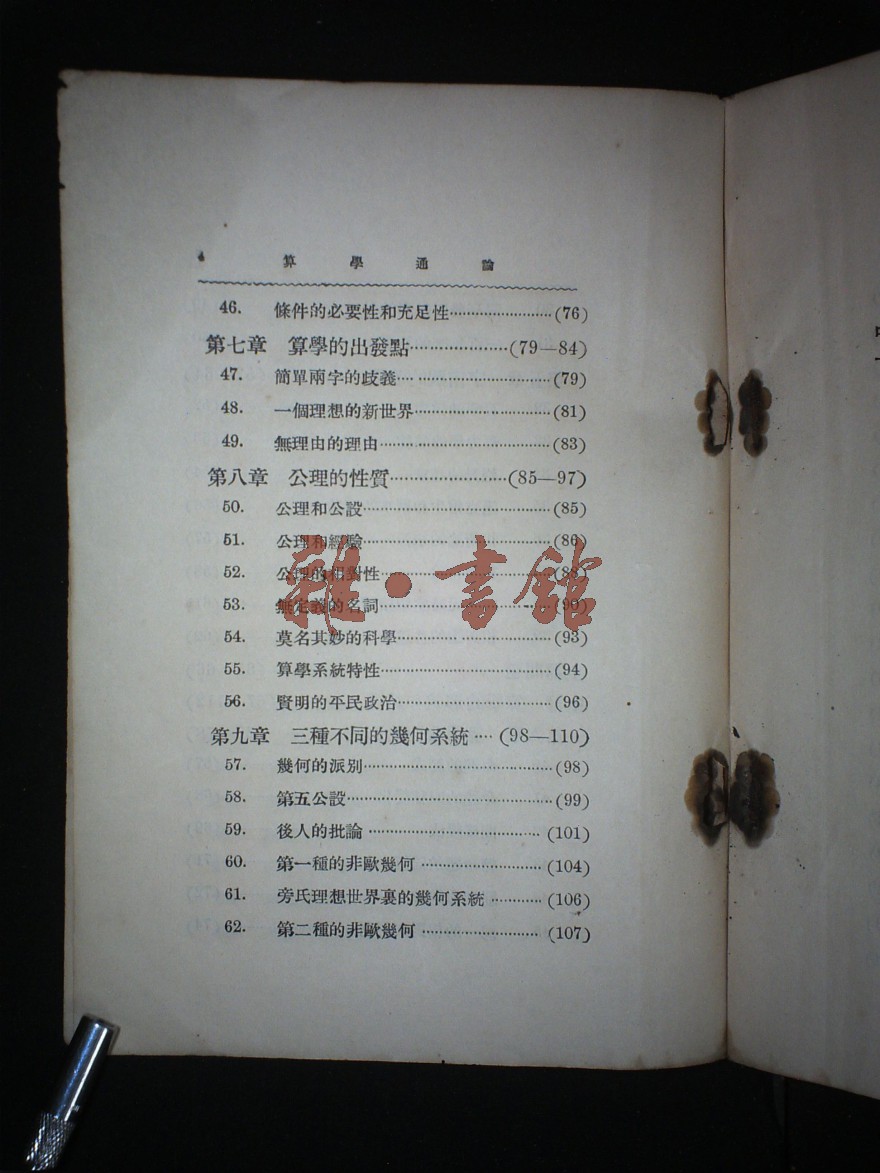 算學通論
46. 條件的必要性和充足性……………………(76)
第七章 算學的出發點…………………(79—84)
47. 簡單兩字的歧義……………………………(79)
48. 一個理想的新世界…………………………(81)
49. 無理由的理由………………………………(83)
第八章 公理的性質……………………(85—97)
50. 公理和公設…………………………………(85)
51. 公理和經驗…………………………………(86)
52. 公理的相對性………………………………(88)
53. 無定義的名詞………………………………(90)
54. 莫名其妙的科學……………………………(93)
55. 算學系統特性………………………………(94)
56. 賢明的平民政治……………………………(96)
第九章 三種不同的幾何系統……(98—110)
57. 幾何的派別…………………………………(98)
58. 第五公設……………………………………(99)
59. 後人的批論…………………………………(101)
60. 第一種的非歐幾何…………………………(104)
61. 旁氏理想世界裏的幾何系統…………(106)
62. 第二種的非歐幾何…………………………(107)
雜·書館